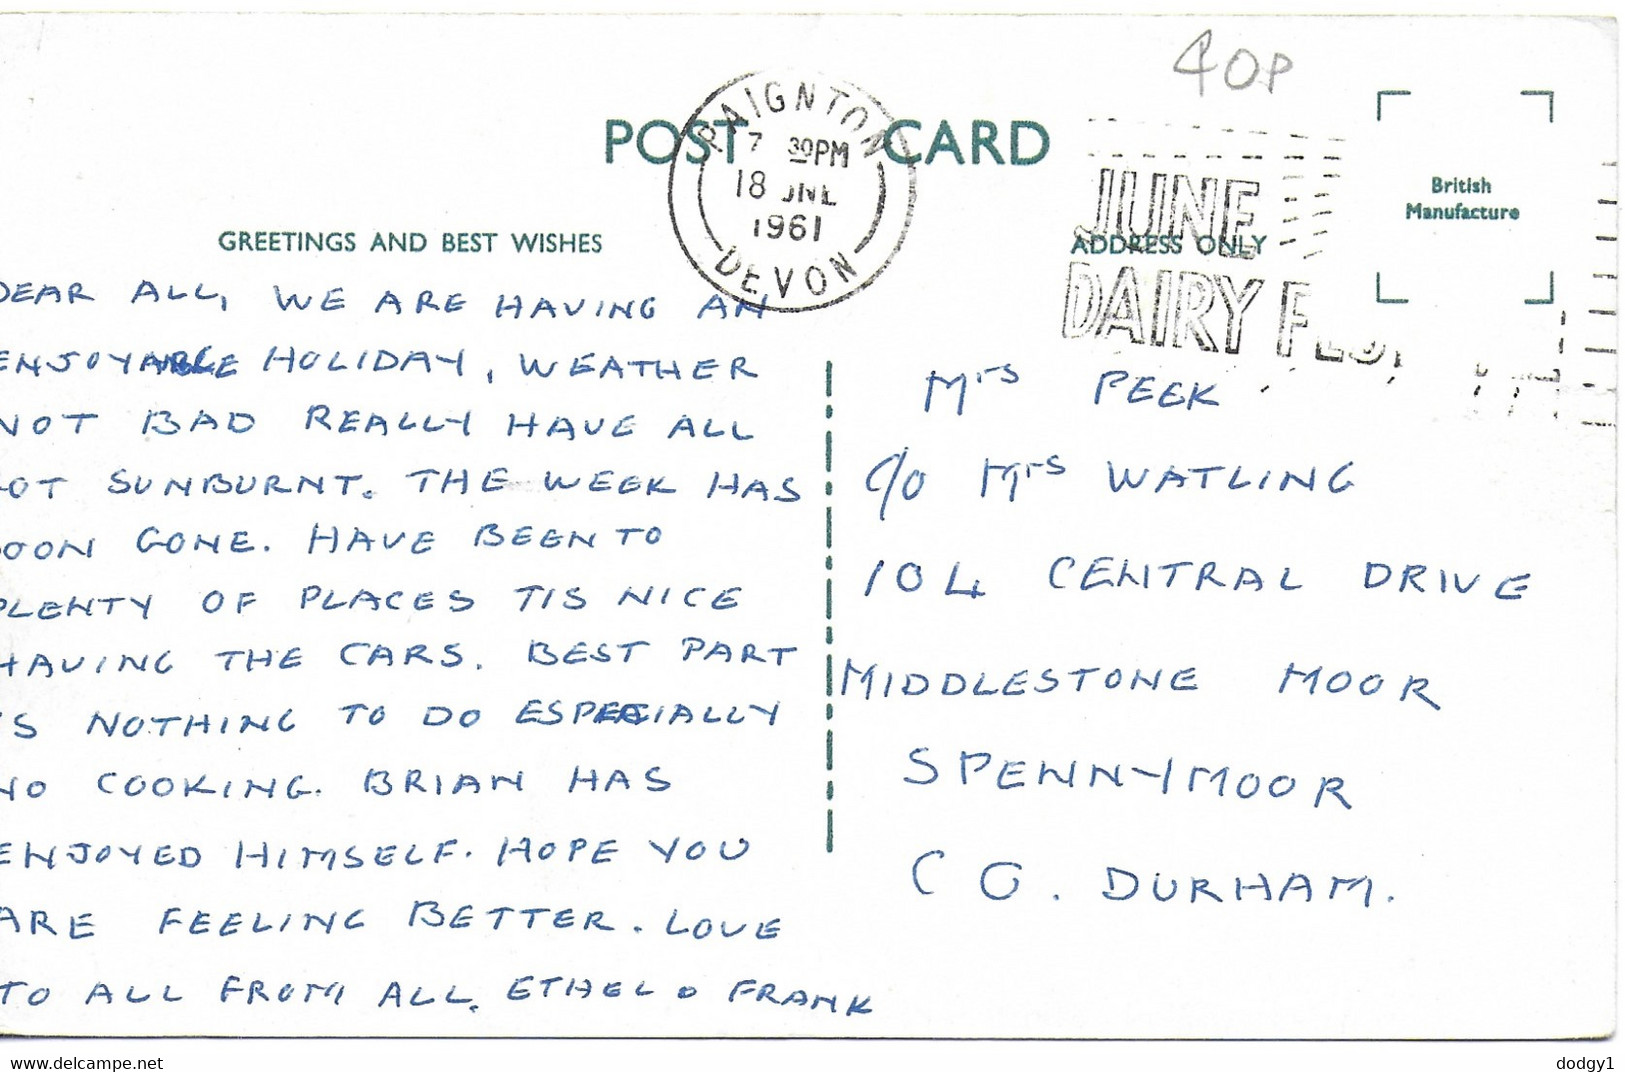 40P
POST CARD
PAIGNTON
7 30PM
18 JNE
1961
DEVON
JUNE
DAIRY FES
British
Manufacture
GREETINGS AND BEST WISHES
ADDRESS ONLY
DEAR ALL, WE ARE HAVING AN
ENJOYABLE HOLIDAY, WEATHER
NOT BAD REALLY HAVE ALL
GOT SUNBURNT. THE WEEK HAS
SOON GONE. HAVE BEEN TO
PLENTY OF PLACES TIS NICE
HAVING THE CARS. BEST PART
IS NOTHING TO DO ESPECIALLY
NO COOKING. BRIAN HAS
ENJOYED HIMSELF. HOPE YOU
ARE FEELING BETTER. LOVE
TO ALL FROM ALL. ETHEL & FRANK
Mrs PEEK
C/O Mrs WATLING
104 CENTRAL DRIVE
MIDDLESTONE MOOR
SPENNYMOOR
CO. DURHAM.
delcampe.net
dodgy1